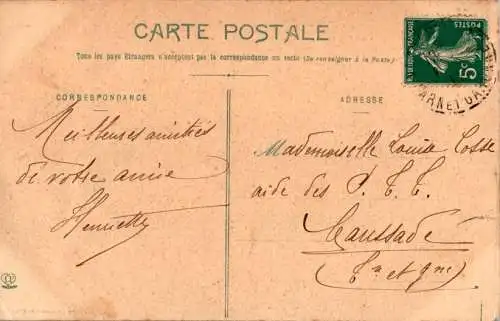 CARTE POSTALE
Tous les pays Etrangers n'acceptent pas la correspondance au recto (Se renseigner à la Poste)
CORRESPONDANCE
ADRESSE
Meilleures amitiés
de votre amie
Henriette
Mademoiselle Louisa Cosse
aide des P. T. T.
Caussade
(Tn et Gne)
REPUBLIQUE FRANÇAISE
POSTES
5c
TARN ET GAR